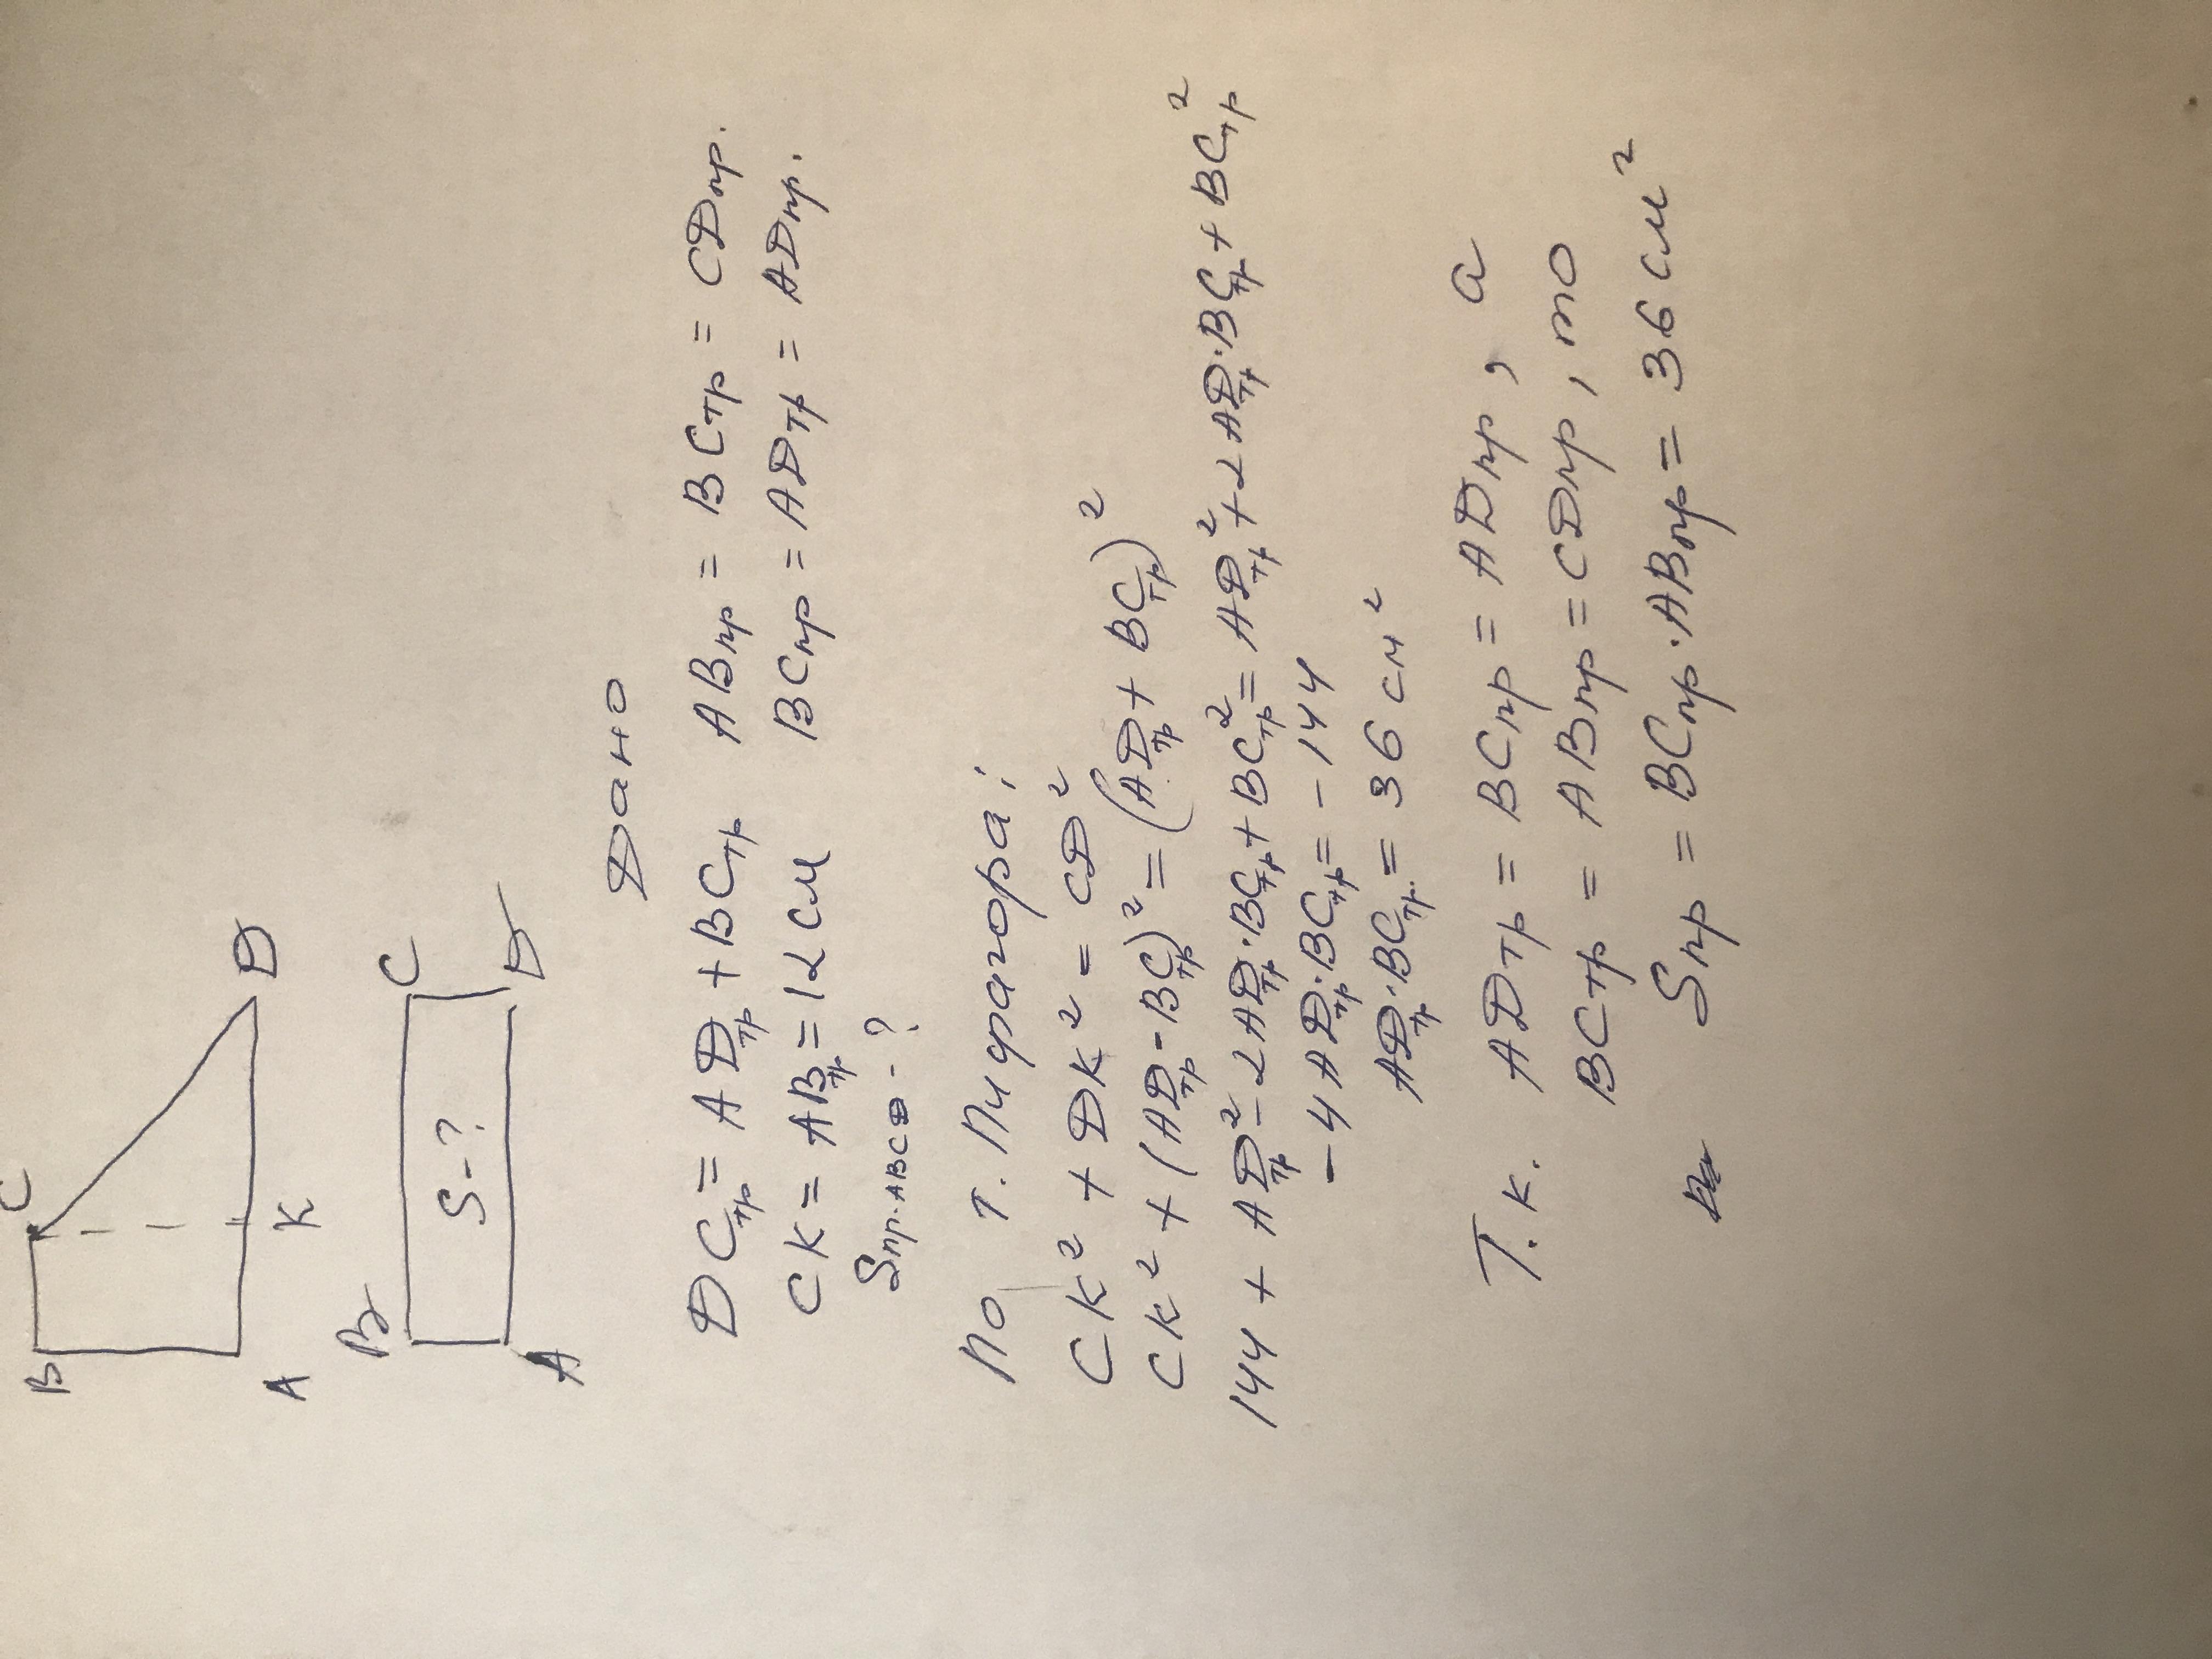 B C
A K D
B C
S-?
A D
Дано
DCтр = ADтр + BCтр ABпр = BCтр = CDпр.
CK = ABтр = 12 см BCпр = ADтр = ADпр.
Sпр. ABCD - ?
По т. Пифагора:
CK² + DK² = CD²
CK² + (ADтр - BCтр)² = (ADтр + BCтр)²
144 + ADтр² - 2ADтр·BCтр + BCтр² = ADтр² + 2ADтр·BCтр + BCтр²
-4ADтр·BCтр = -144
ADтр·BCтр. = 36 см²
Т.к. ADтр = BCпр = ADпр, а
BCтр = ABпр = CDпр, то
Sпр = BCпр·ABпр = 36 см²